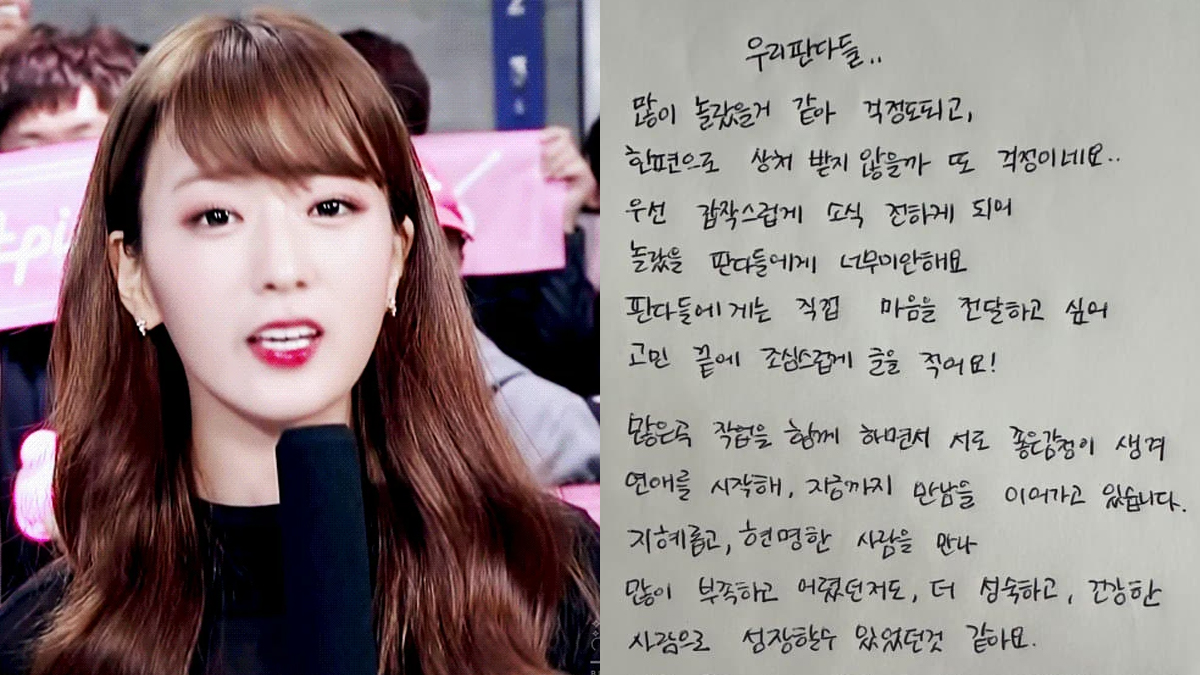 우리판다들..
많이 놀랐을거 같아 걱정도되고,
한편으로 상처 받지 않을까 또 걱정이네요..
우선 갑작스럽게 소식 전하게 되어
놀랐을 판다들에게 너무미안해요
판다들에게는 직접 마음을 전달하고 싶어
고민 끝에 조심스럽게 글을 적어요!
많은곡 작업을 함께 하면서 서로 좋은감정이 생겨
연애를 시작해, 지금까지 만남을 이어가고 있습니다.
지혜롭고, 현명한 사람을 만나
많이 부족하고 어렸던저도, 더 성숙하고, 건강한
사람으로 성장할수 있었던것 같아요.